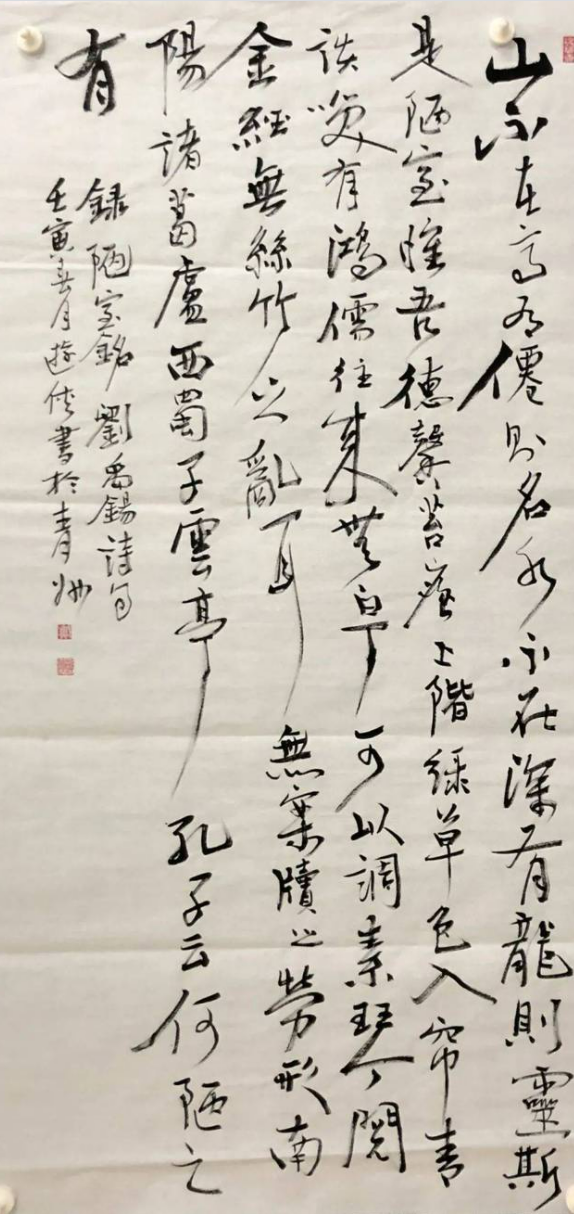 山不在高有僊则名水不在深有龍則靈斯
是陋室惟吾德馨苔痕上階緑草色入帘青
談笑有鴻儒往来無白丁可以調素琴閱
金經無絲竹之亂耳無案牘之勞形南
陽諸葛盧西蜀子雲亭孔子云何陋之
有
録陋室銘劉禹錫詩句
壬寅春月遊俠書於青州